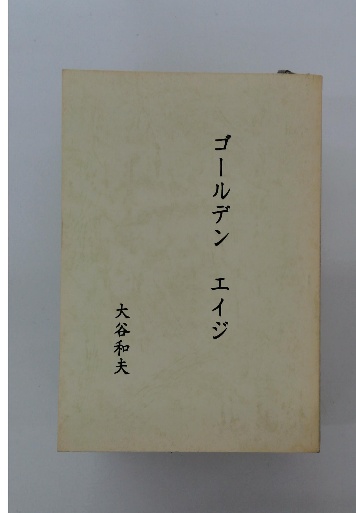 ゴールデン　エイジ
大谷和夫